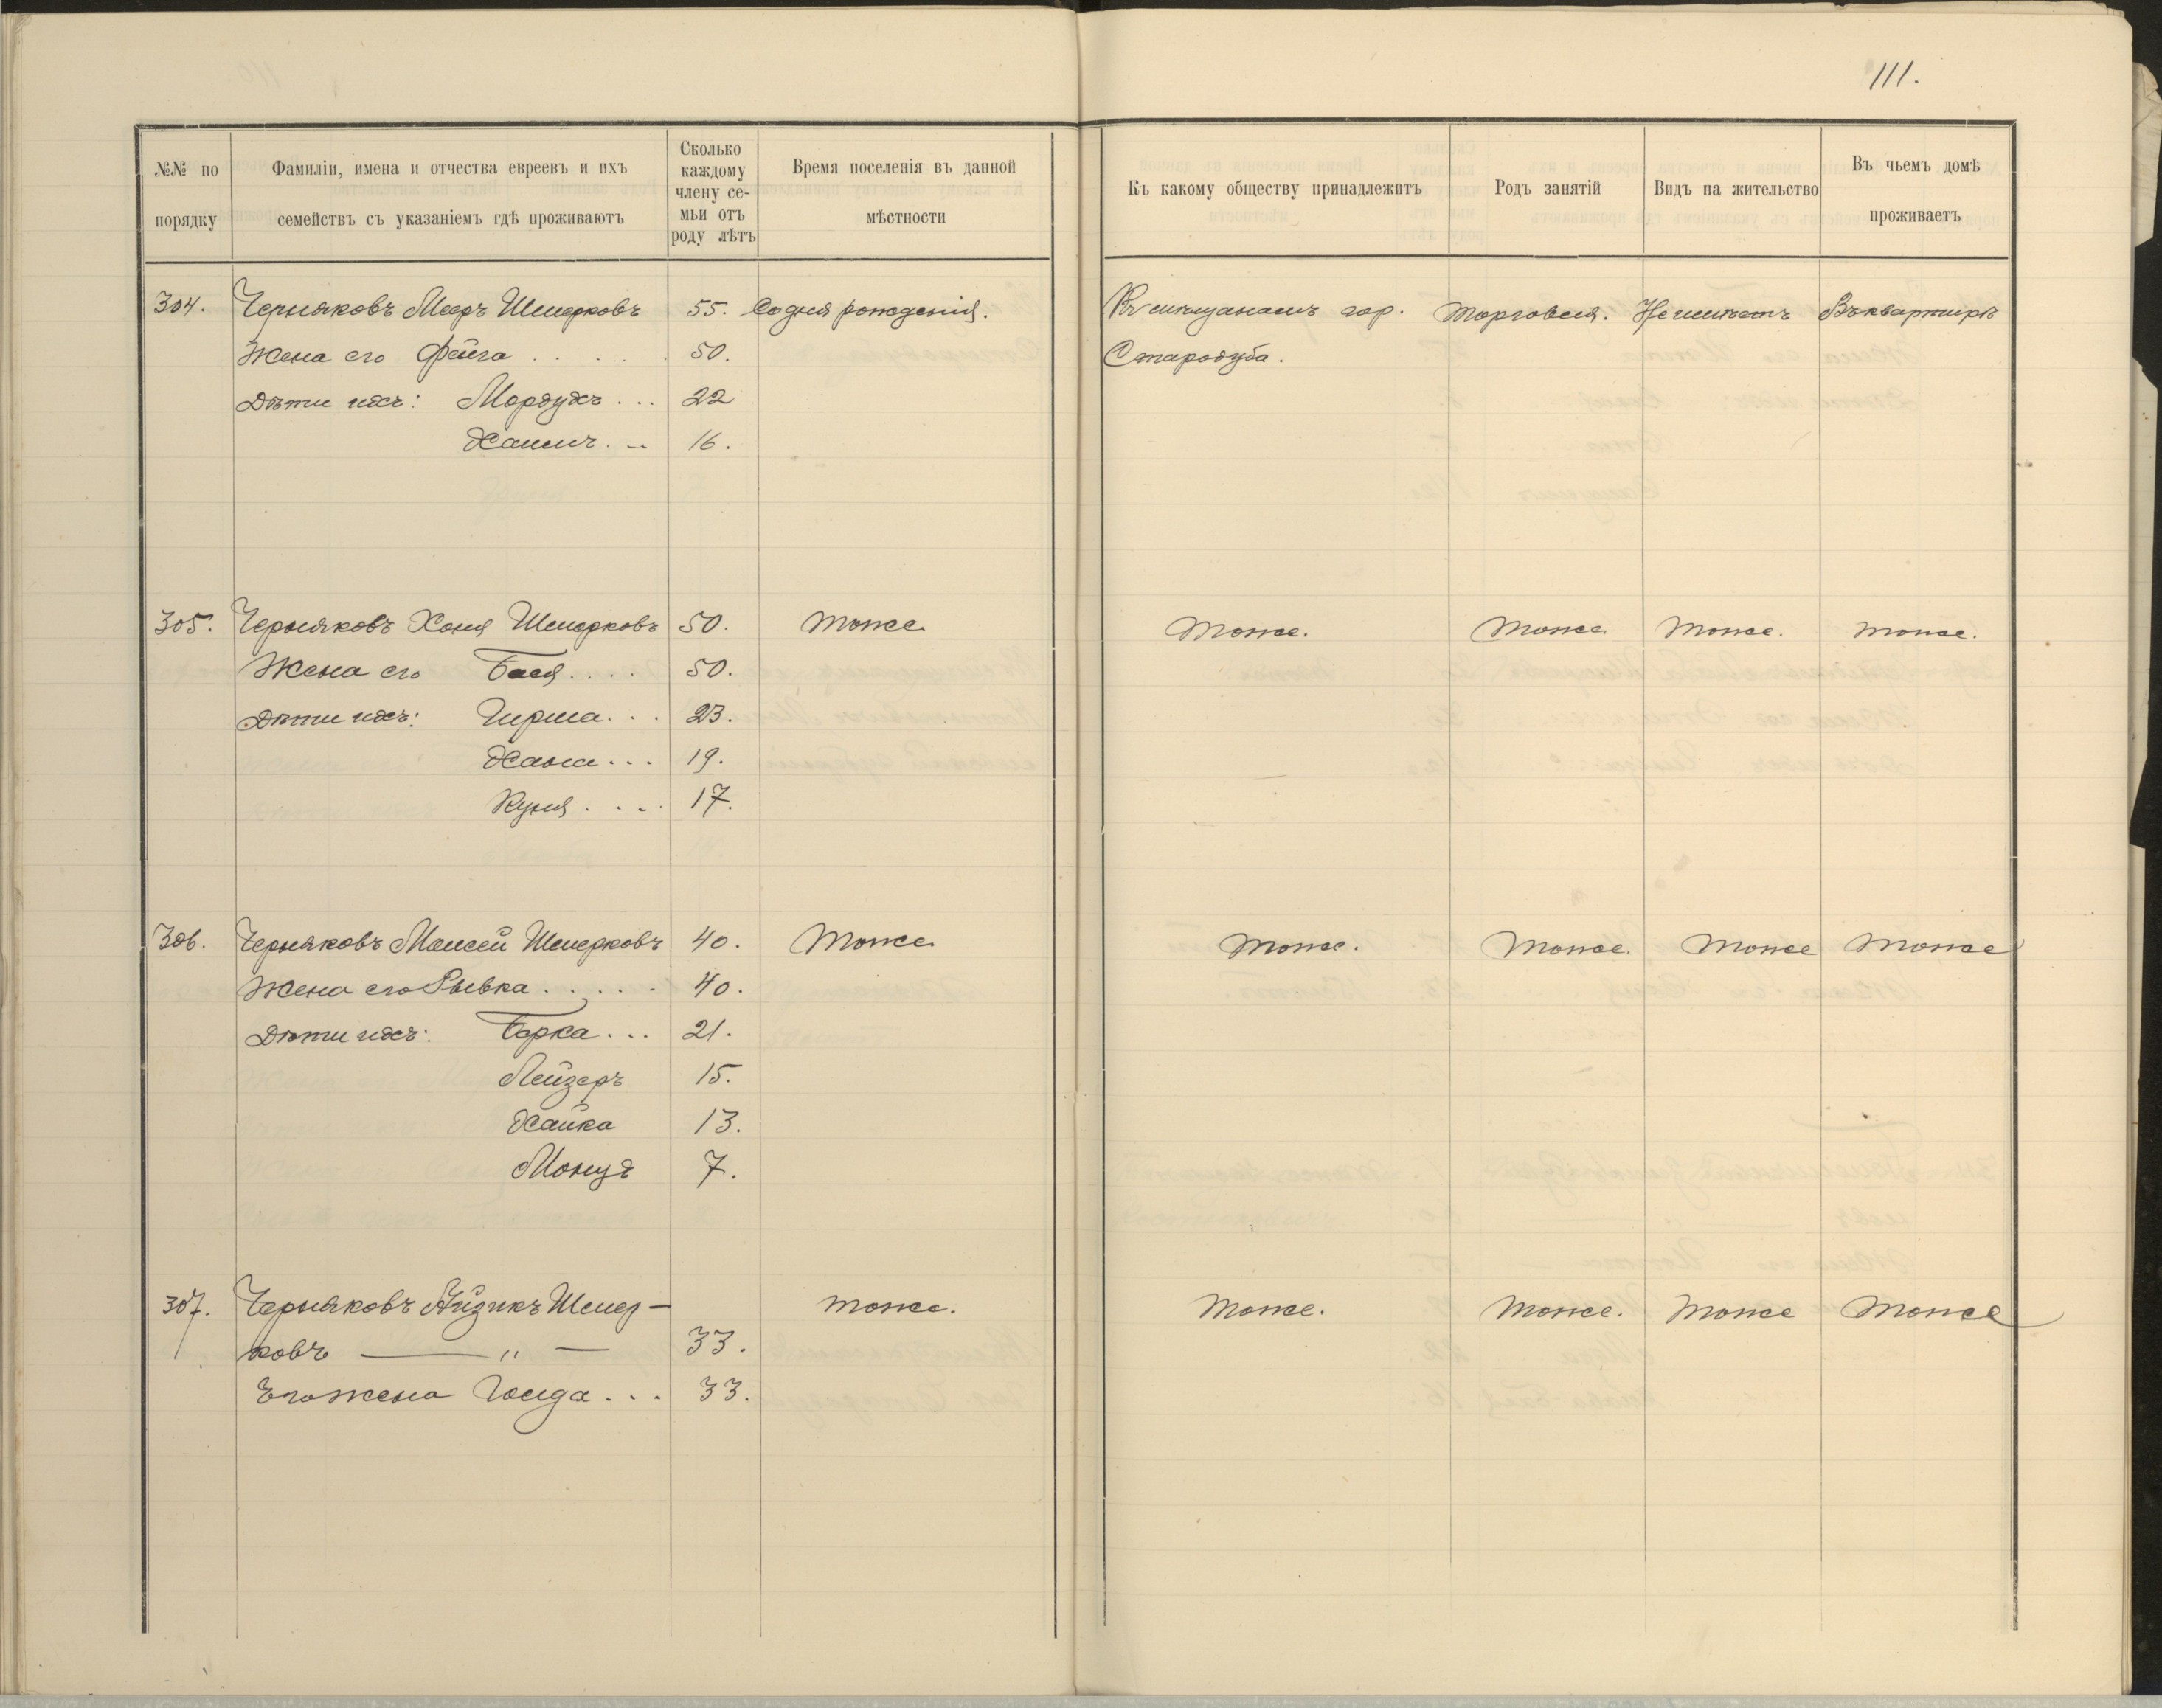 111.
№№ по порядку
Фамиліи, имена и отчества евреевъ и ихъ семействъ съ указаніемъ гдѣ проживаютъ
Сколько каждому члену семьи отъ роду лѣтъ
Время поселенія въ данной мѣстности
Къ какому обществу принадлежитъ
Родъ занятій
Видъ на жительство
Въ чьемъ домѣ проживаетъ
304. Черняковъ Мееръ Шмерковъ 55. Со дня рожденія. Къ мѣщанамъ гор. Торговля. Не имѣетъ Въ квартирѣ
Жена его Фейга . . . . . 50. Стародуба.
Дѣти ихъ: Мордухъ . . . 22
Хаимъ . . . 16.
305. Черняковъ Хоня Шмерковъ 50. Тоже Тоже. Тоже Тоже. Тоже.
Жена его Бася . . . . 50.
Дѣти ихъ: Гирша . . . 23.
Хана . . . 19.
Куня . . . . 17.
306. Черняковъ Моисей Шмерковъ 40. Тоже Тоже. Тоже. Тоже Тоже
Жена его Рывка . . . . . 40.
Дѣти ихъ: Борка . . . 21.
Лейзеръ 15.
Хайка 13.
7.
307. Черняковъ Айзикъ Шмер- Тоже. Тоже. Тоже. Тоже Тоже
ковъ — „ — 33.
Его жена Голда . . . 33.